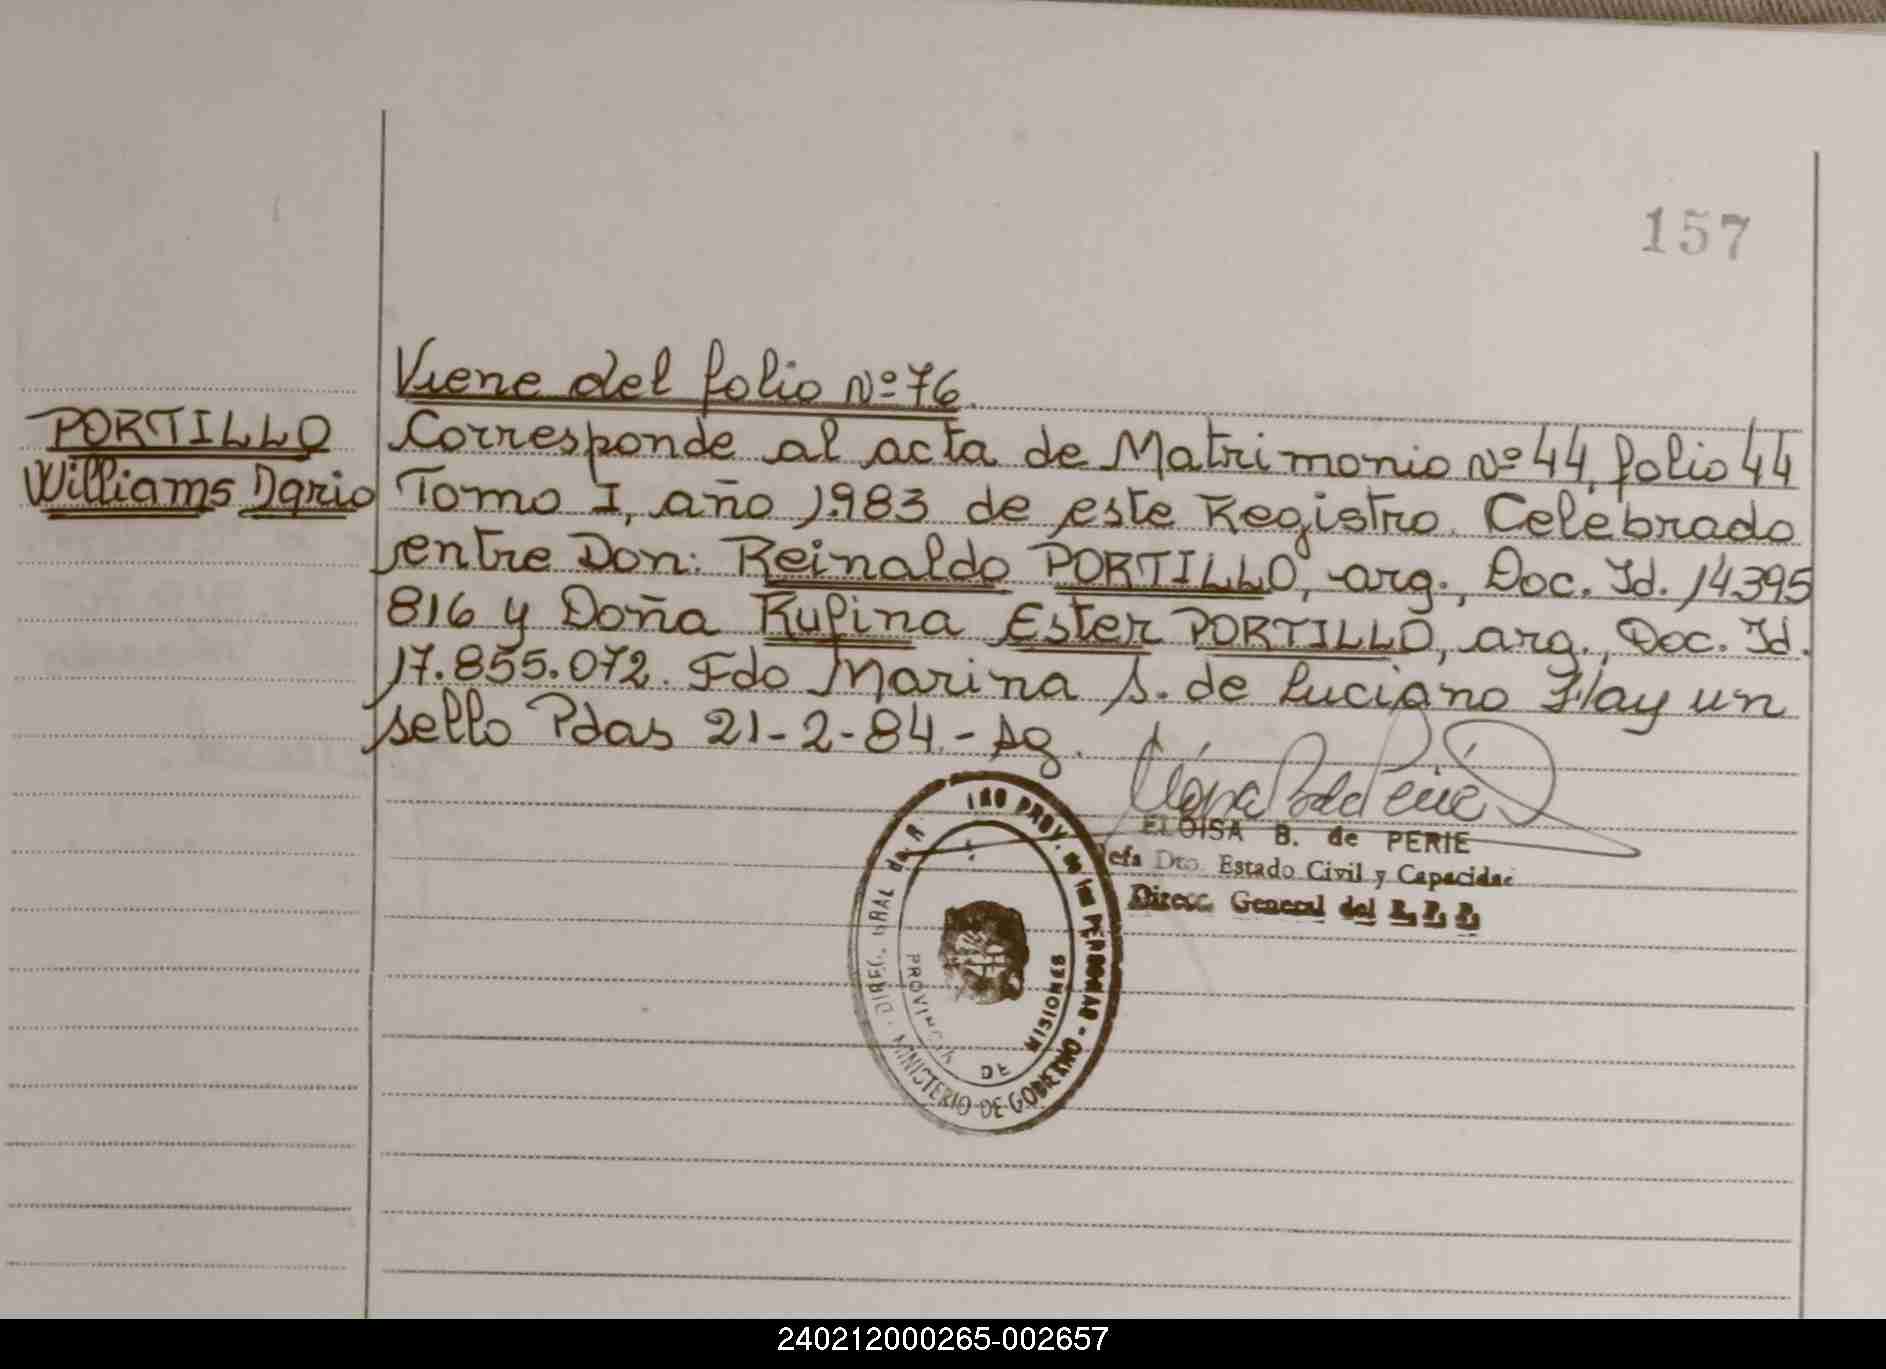 157
Viene del folio Nº 76.
PORTILLO
Williams Dario
Corresponde al acta de Matrimonio Nº 44, folio 44
Tomo I, año 1.983 de este Registro. Celebrado
entre Don: Reinaldo PORTILLO, arg., Doc. Id. 14395
816 y Doña Rufina Ester PORTILLO, arg., Doc. Id.
17.855.072. Fdo Marina S. de Luciano Hay un
sello Pdas 21-2-84.- Ag.
ELOISA B. de PERIE
Jefa Dto. Estado Civil y Capacidad
Direcc. General del R. P. P.
PROV. DE LAS PERSONAS - MINISTERIO DE GOBERNO - DIREC. GRAL de R.
PROVINCIA DE MISIONES
240212000265-002657